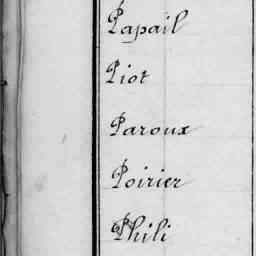 Papail
Piot
Paroux
Poirier
Phili